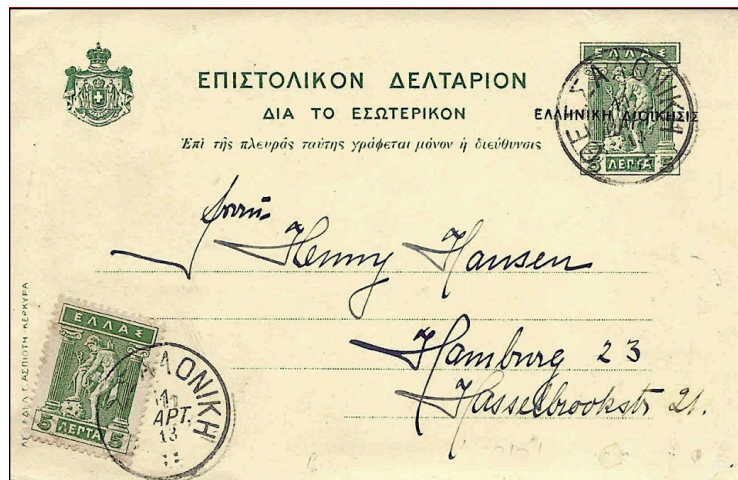 ΕΠΙΣΤΟΛΙΚΟΝ ΔΕΛΤΑΡΙΟΝ
ΔΙΑ ΤΟ ΕΣΩΤΕΡΙΚΟΝ
Ἐπὶ τῆς πλευρᾶς ταύτης γράφεται μόνον ἡ διεύθυνσις
ΕΛΛΑΣ
ΕΛΛΗΝΙΚΗ ΔΙΟΙΚΗΣΙΣ
5 ΛΕΠΤΑ 5
ΣΑΛΟΝΙΚΗ
Henny Hansen
Hamburg 23
Hasselbrookstr 21.
ΕΛΛΑΣ
5 ΛΕΠΤΑ 5
ΑΛΟΝΙΚΗ
ΑΡΤ.
13
ΑΣΠΙΩΤΗ ΚΕΡΚΥΡΑ